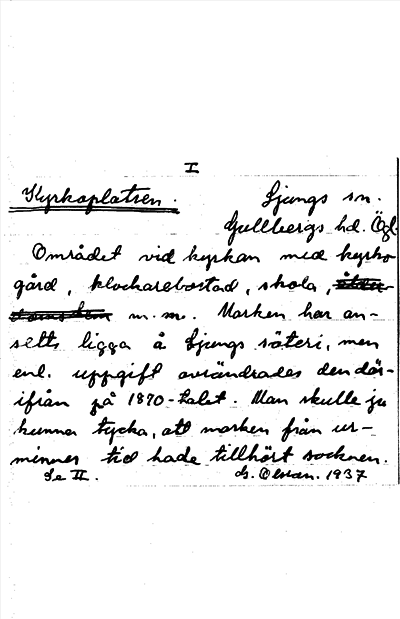 I
Kyrkoplatsen.
Ljungs sn.
Gullbergs hd. Ögl.
Området vid kyrkan med kyrko
gård, klockarebostad, skola, ålder-
domshem m.m. Marken har an-
setts ligga å Ljungs säteri, men
enl. uppgift avsöndrades den där-
ifrån på 1870-talet. Man skulle ju
kunna tycka, att marken från ur-
minnes tid hade tillhört socknen.
Se II.
G. Olsson. 1937